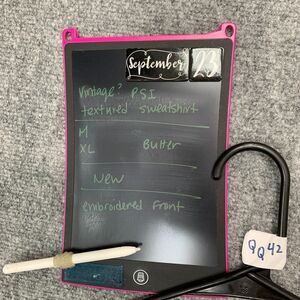 September 23
Vintage? PSI
textured sweatshirt
M
XL Butter
New
embroidered front
QQ42